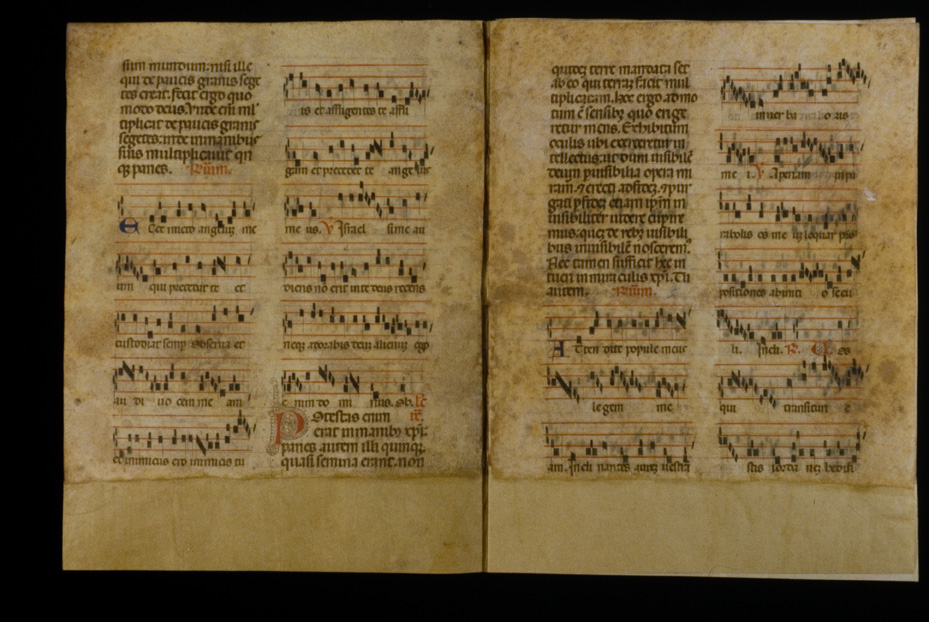 sum mundum: nisi ille
qui de paucis granis sege
tes creat. fecit ergo quo
modo deus. Vnde eni mł
tiplicat de paucis granis
segetes: inde in manibus
suis multiplicauit qn
qz panes. Rium.
E Cce mitto angelum me
um qui precedat te et
custodiat semp obserua et
au di uo cem me am
et inimicus ero inimicis tu
is et affligentes te affli
gam et precedet te angelus
me us. V Israel si me au
dieris nō erit in te deus recens
neqz adorabis deum alienum ego
e nim do mi nus. Ob.
Potestas enim
erat in manibz xpi:
panes autem illi quinqz
quasi semina erant. non
quidez terre mandata set
ab eo qui terraz facit mul
tiplicatam. hoc ergo admo
tum ē sensibz quo erige
retur mens. Exhibitum
oculis ubi exerceretur in
tellectus: ut dum
deum p uisibilia opera mi
et erecti ad fidez. et pur
gati p fidez etiam ipm in
uisibiliter uidere cupere
mus: quez de rebz uisibili
bus inuisibilē nosceremꝰ.
Nec tamen sufficit hec in
tueri in miraculis xpi. Tu
autem. Rium.
A Ttendite popule meus
legem me
am. Incli nantes aurez uestra
in uer ba o ris
me i. V Aperiam in pa
rabolis os me um loquar pro
positiones ab initi o secu
li. Incli. R. es
qui transitum
stis iorda